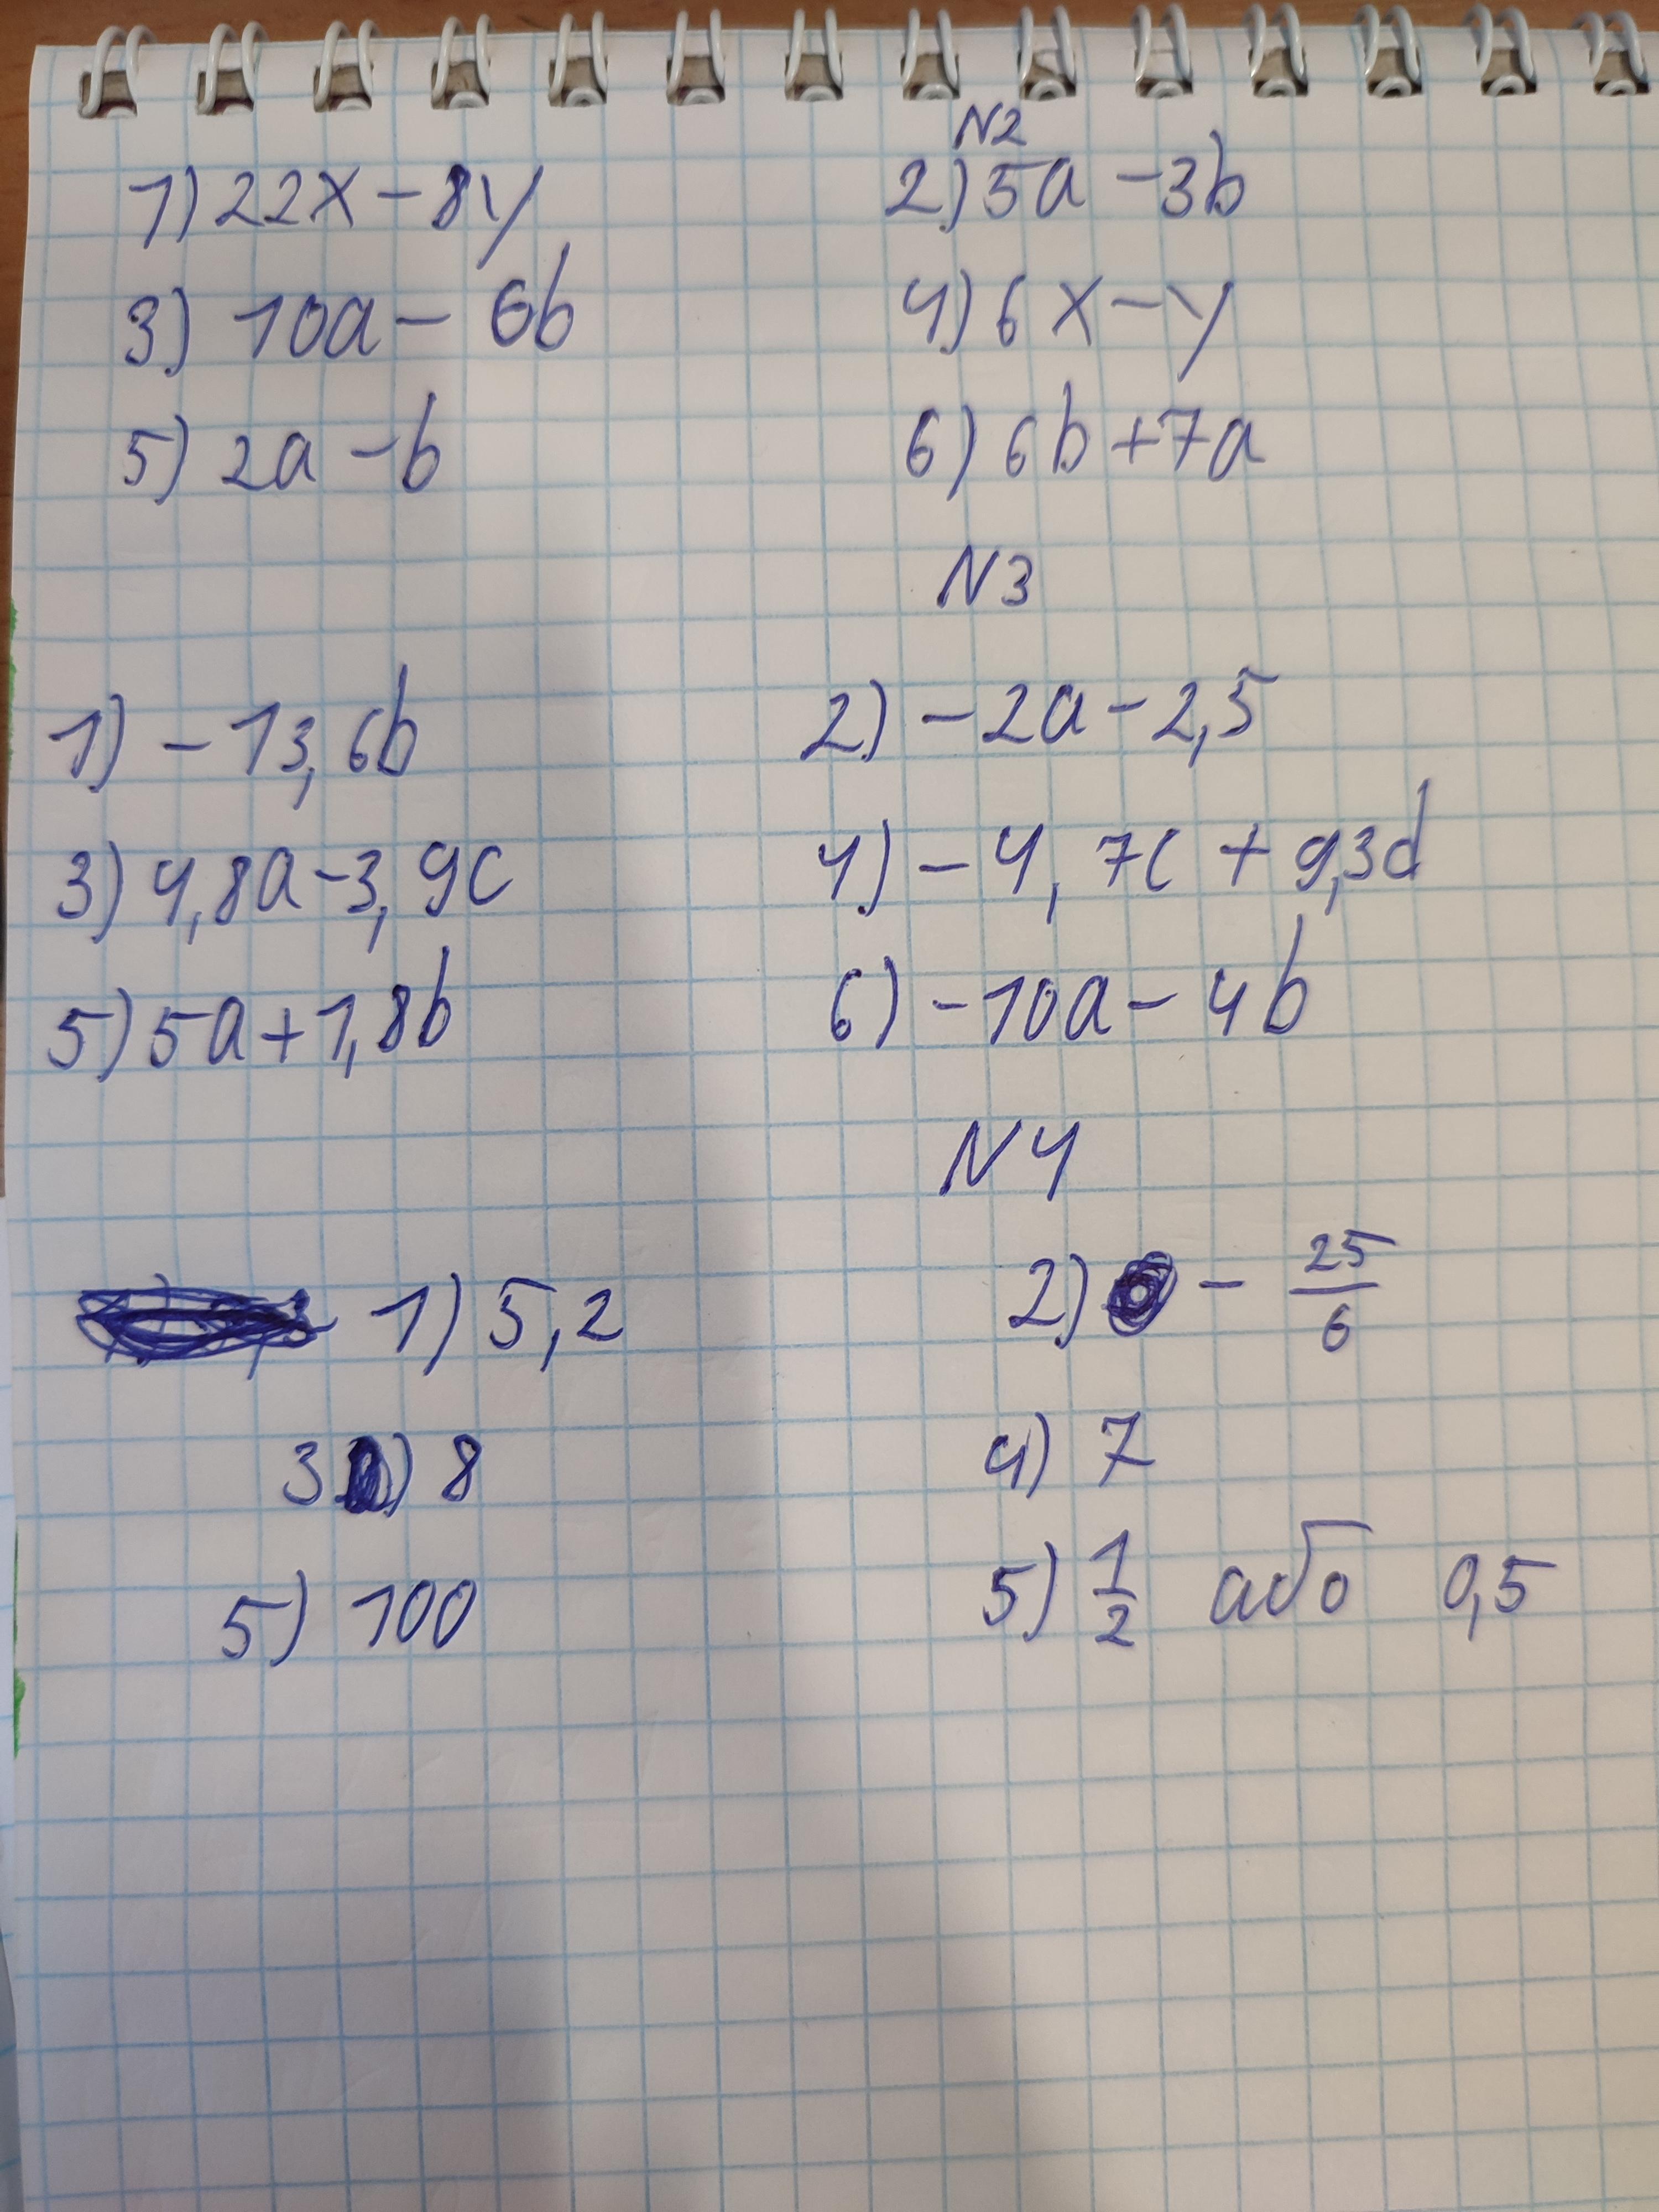 N2
1) 22x - 8y 2) 5a - 3b
3) 10a - 6b 4) 6x - y
5) 2a - b 6) 6b + 7a
N3
1) - 13,6b 2) - 2a - 2,5
3) 4,8a - 3,9c 4) - 4,7c + 9,3d
5) 5a + 1,8b 6) - 10a - 4b
N4
1) 5,2 2) - 25/6
3) 8 4) 7
5) 100 5) 1/2 або 0,5